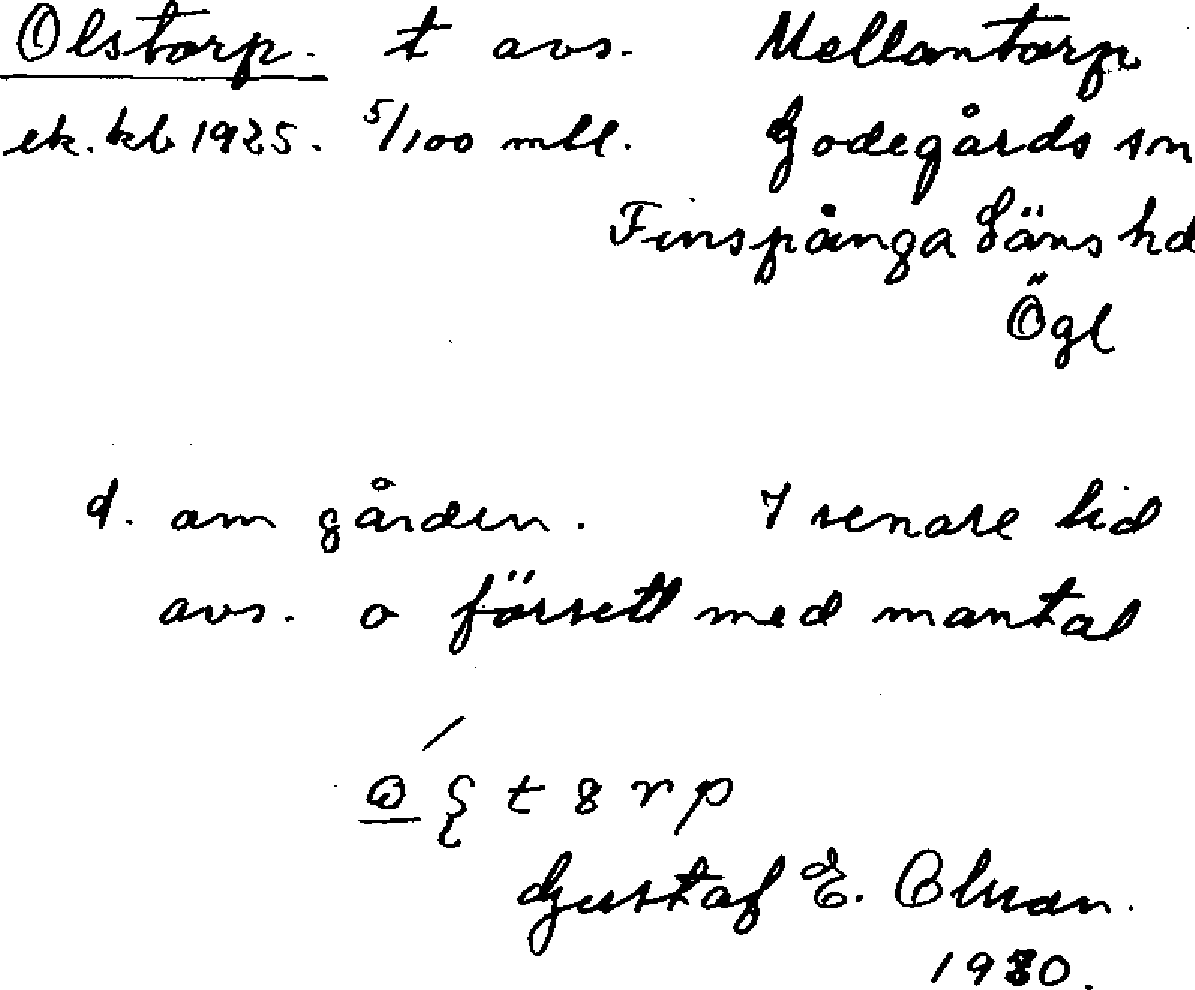 Olstorp. t avs. Mellantorp
ek. kb 1925. 5/100 mtl. Godegårds sn
Finspånga läns hd
Ögl
d. om gården. I senare tid
avs. o försett med mantal
Gustaf E. Olsson.
1930.